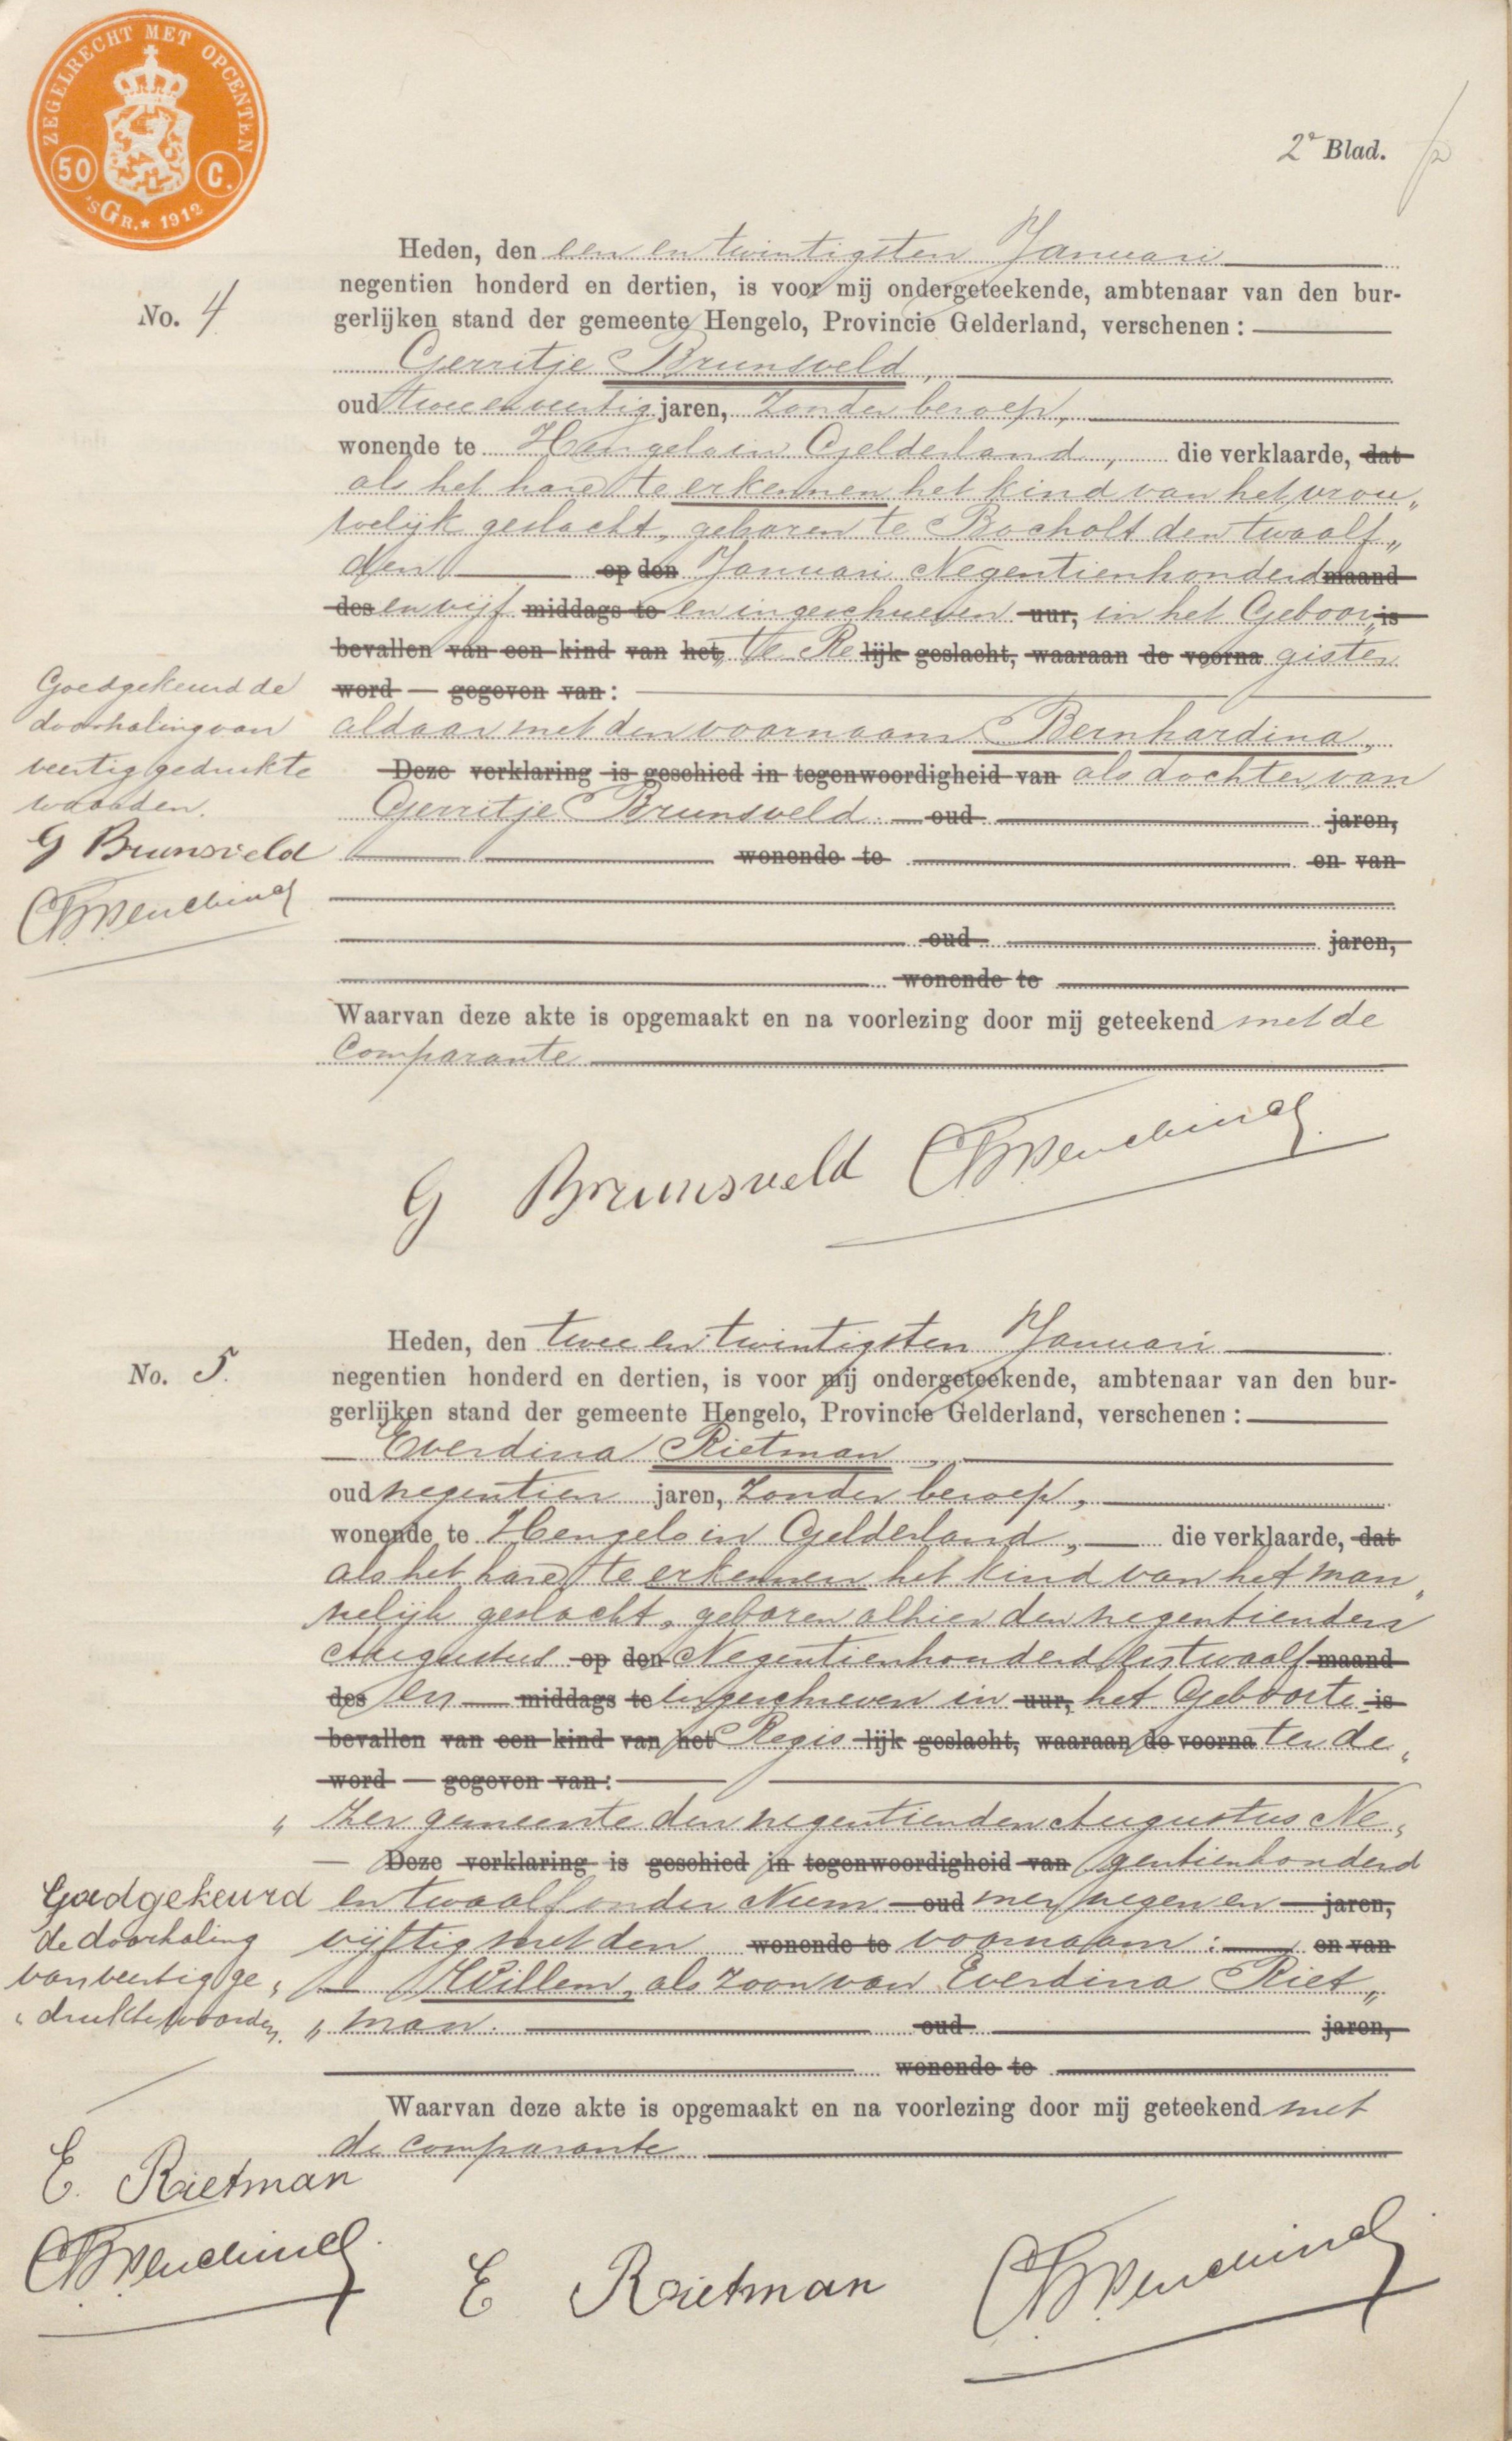 ZEGELRECHT MET OPCENTEN
50 C.
'sGR. * 1912
2e Blad.
Heden, den een en twintigsten Januari
No. 4
negentien honderd en dertien, is voor mij ondergeteekende, ambtenaar van den bur-
gerlijken stand der gemeente Hengelo, Provincie Gelderland, verschenen:
Gerritje Brunsveld,
oud twee en veertig jaren, Zonder beroep,
wonende te Hengelo in Gelderland, die verklaarde, dat
als het hare te erkennen het kind van het vrou„
welijk geslacht, geboren te Bocholt den twaalf„
den op den Januari Negentienhonderd maand
des en vijf middags te en ingeschreven uur, in het Geboor„ is
bevallen van een kind van het te Re lijk geslacht, waaraan de voorna gister
word — gegeven van:
aldaar met den voornaam Bernhardina,
Deze verklaring is geschied in tegenwoordigheid van als dochter van
Gerritje Brunsveld. oud jaren,
wonende te en van
oud jaren,
wonende te
Goedgekeurd de
doorhaling van
veertig gedrukte
woorden.
G Brunsveld
Waarvan deze akte is opgemaakt en na voorlezing door mij geteekend met de
Comparante
G Brunsveld
Heden, den twee en twintigsten Januari
No. 5.
negentien honderd en dertien, is voor mij ondergeteekende, ambtenaar van den bur-
gerlijken stand der gemeente Hengelo, Provincie Gelderland, verschenen:
Everdina Rietman,
oud negentien jaren, Zonder beroep,
wonende te Hengelo in Gelderland, die verklaarde, dat
als het hare te erkennen het kind van het man„
nelijk geslacht, geboren alhier den negentienden
Augustus op den Negentienhonderd en twaalf maand
des en middags te ingeschreven in uur, het Geboorte is
bevallen van een kind van het Regis lijk geslacht, waaraan de voorna ter de„
word — gegeven van:
„zer gemeente den negentienden Augustus Ne„
Deze verklaring is geschied in tegenwoordigheid van gentienhonderd
en twaalf onder Num oud mer negen en jaren,
vijftig met den wonende te voornaam: en van
Willem, als zoon van Everdina Riet„
„man. oud jaren,
wonende te
Goedgekeurd
de doorhaling
van veertig ge„
„drukte woorden.
Waarvan deze akte is opgemaakt en na voorlezing door mij geteekend met
de comparante
E. Rietman
E Rietman